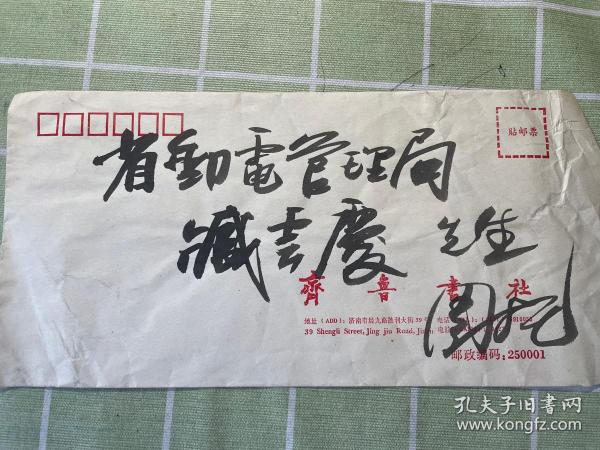 贴邮票
省勞動電管理局
臧雲慶 先生
齊魯書社
地址(ADD):济南市经九路胜利大街39号
39 Shengli Street, Jing jiu Road, Jinan
邮政编码:250001
孔夫子旧书网
www.kongfz.com